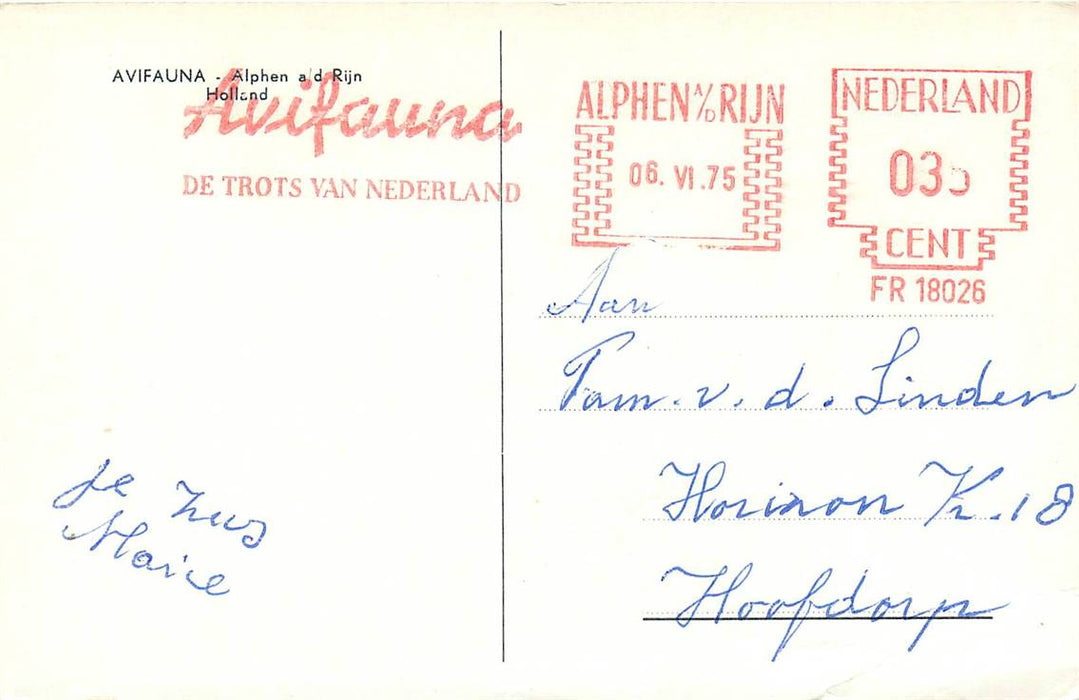 AVIFAUNA - Alphen a/d Rijn
Holland
Avifauna
DE TROTS VAN NEDERLAND
ALPHEN A/D RIJN
06. VI .75
NEDERLAND
035
CENT
FR 18026
Aan
Fam. v. d. Linden
Horizon K. 18
Hoofdorp
je zus
Marie